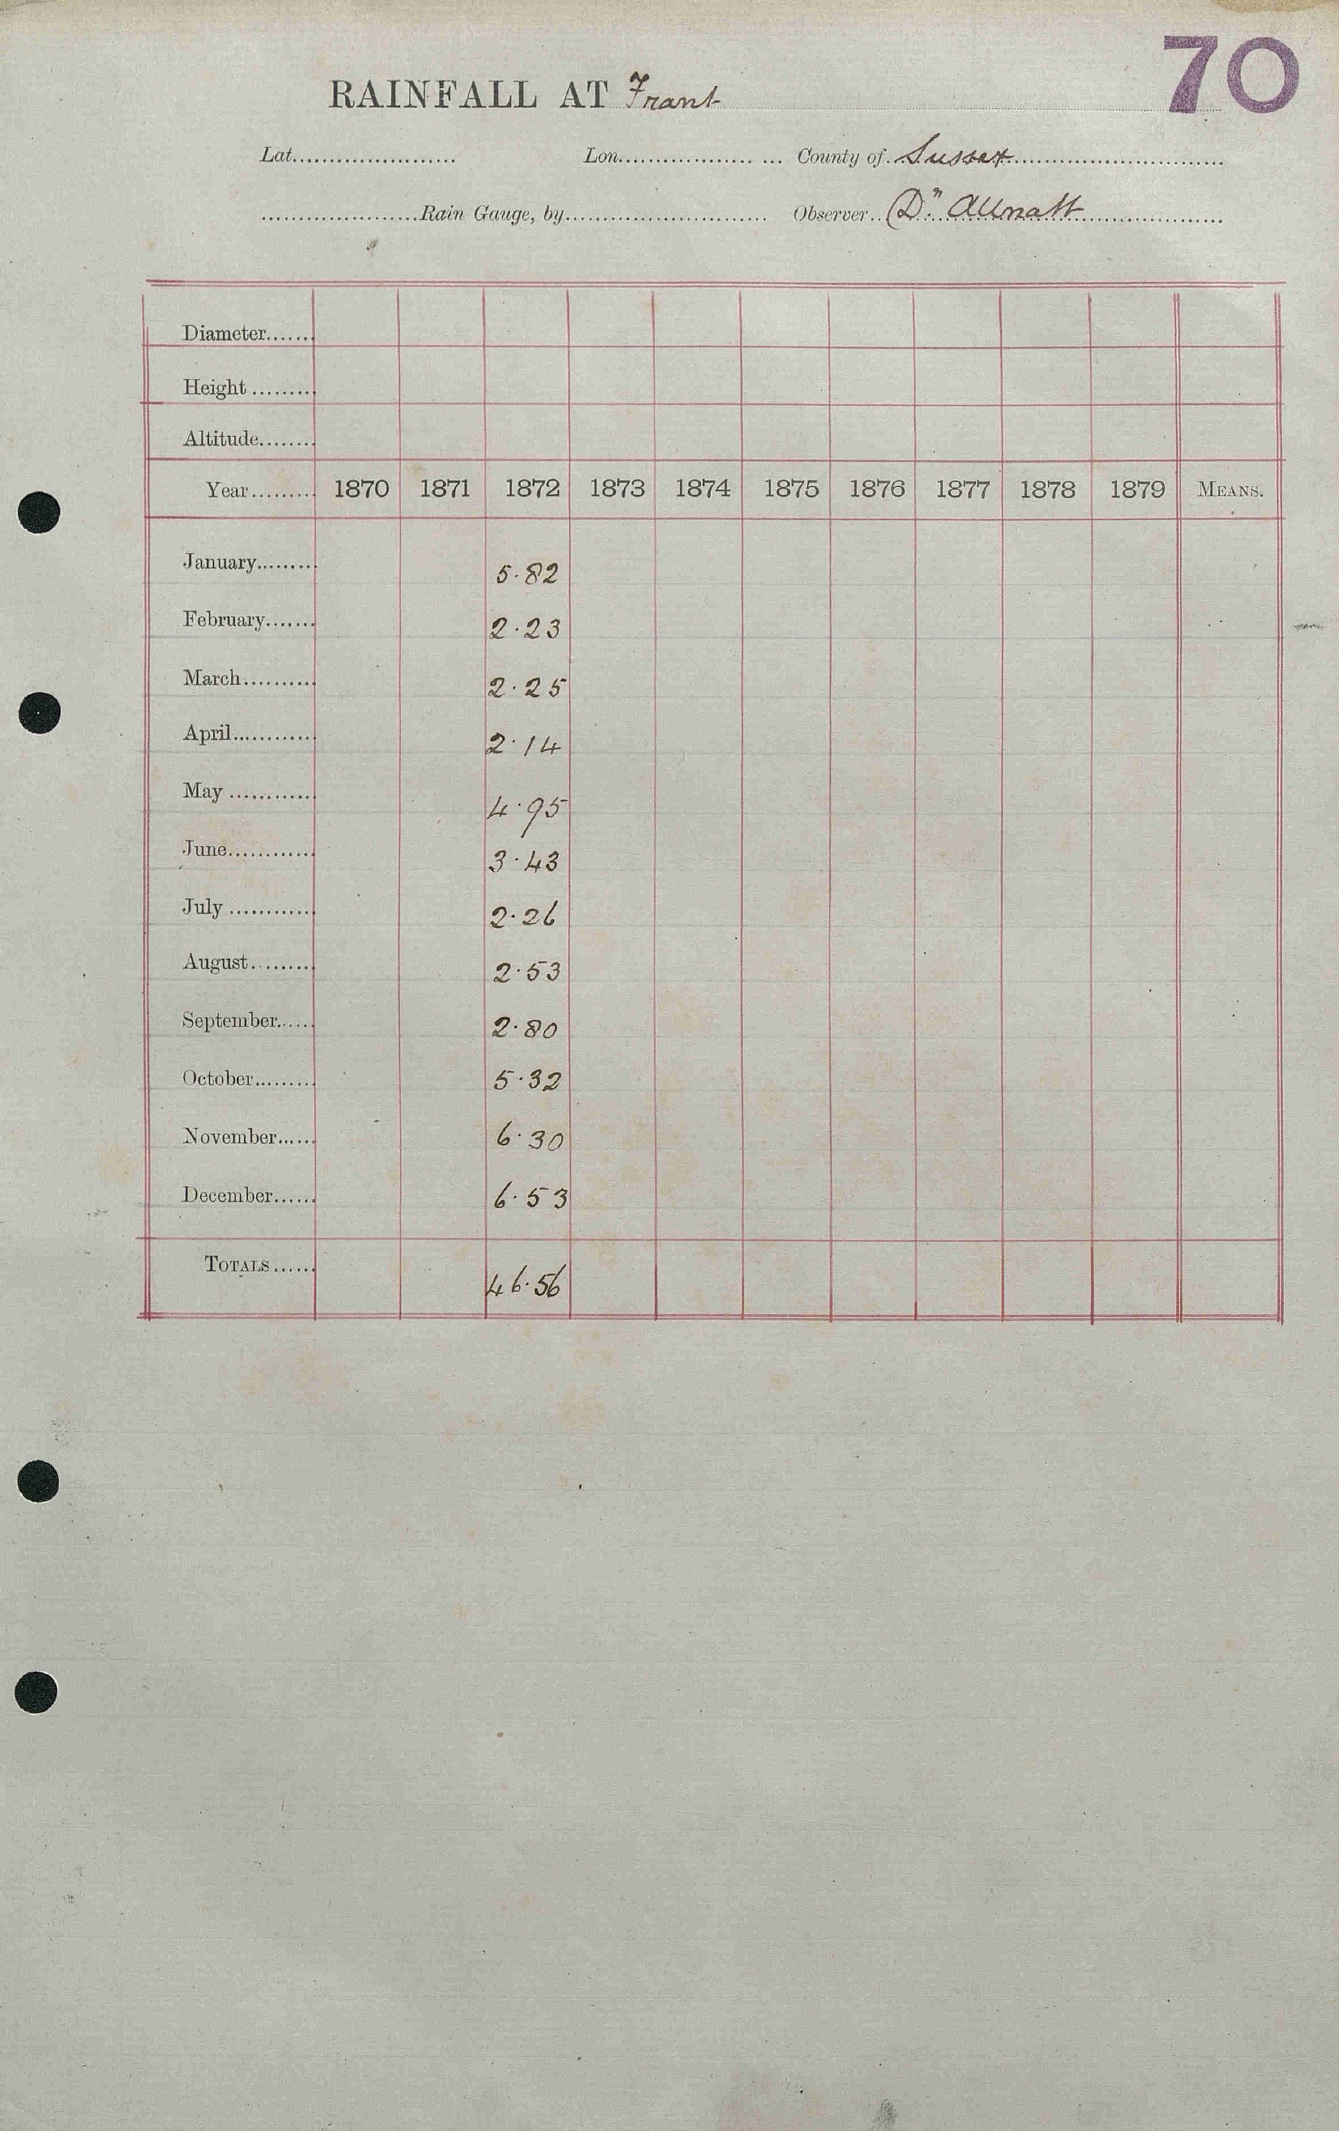 70
RAINFALL AT Frant
Lat. Lon. County of Sussex
Rain Gauge, by Observer Dr. Allnatt
Diameter
Height
Altitude
Year 1870 1871 1872 1873 1874 1875 1876 1877 1878 1879 MEANS.
January 5.82
February 2.23
March 2.25
April 2.14
May 4.95
June 3.43
July 2.26
August 2.53
September 2.80
October 5.32
November 6.30
December 6.53
TOTALS 46.56